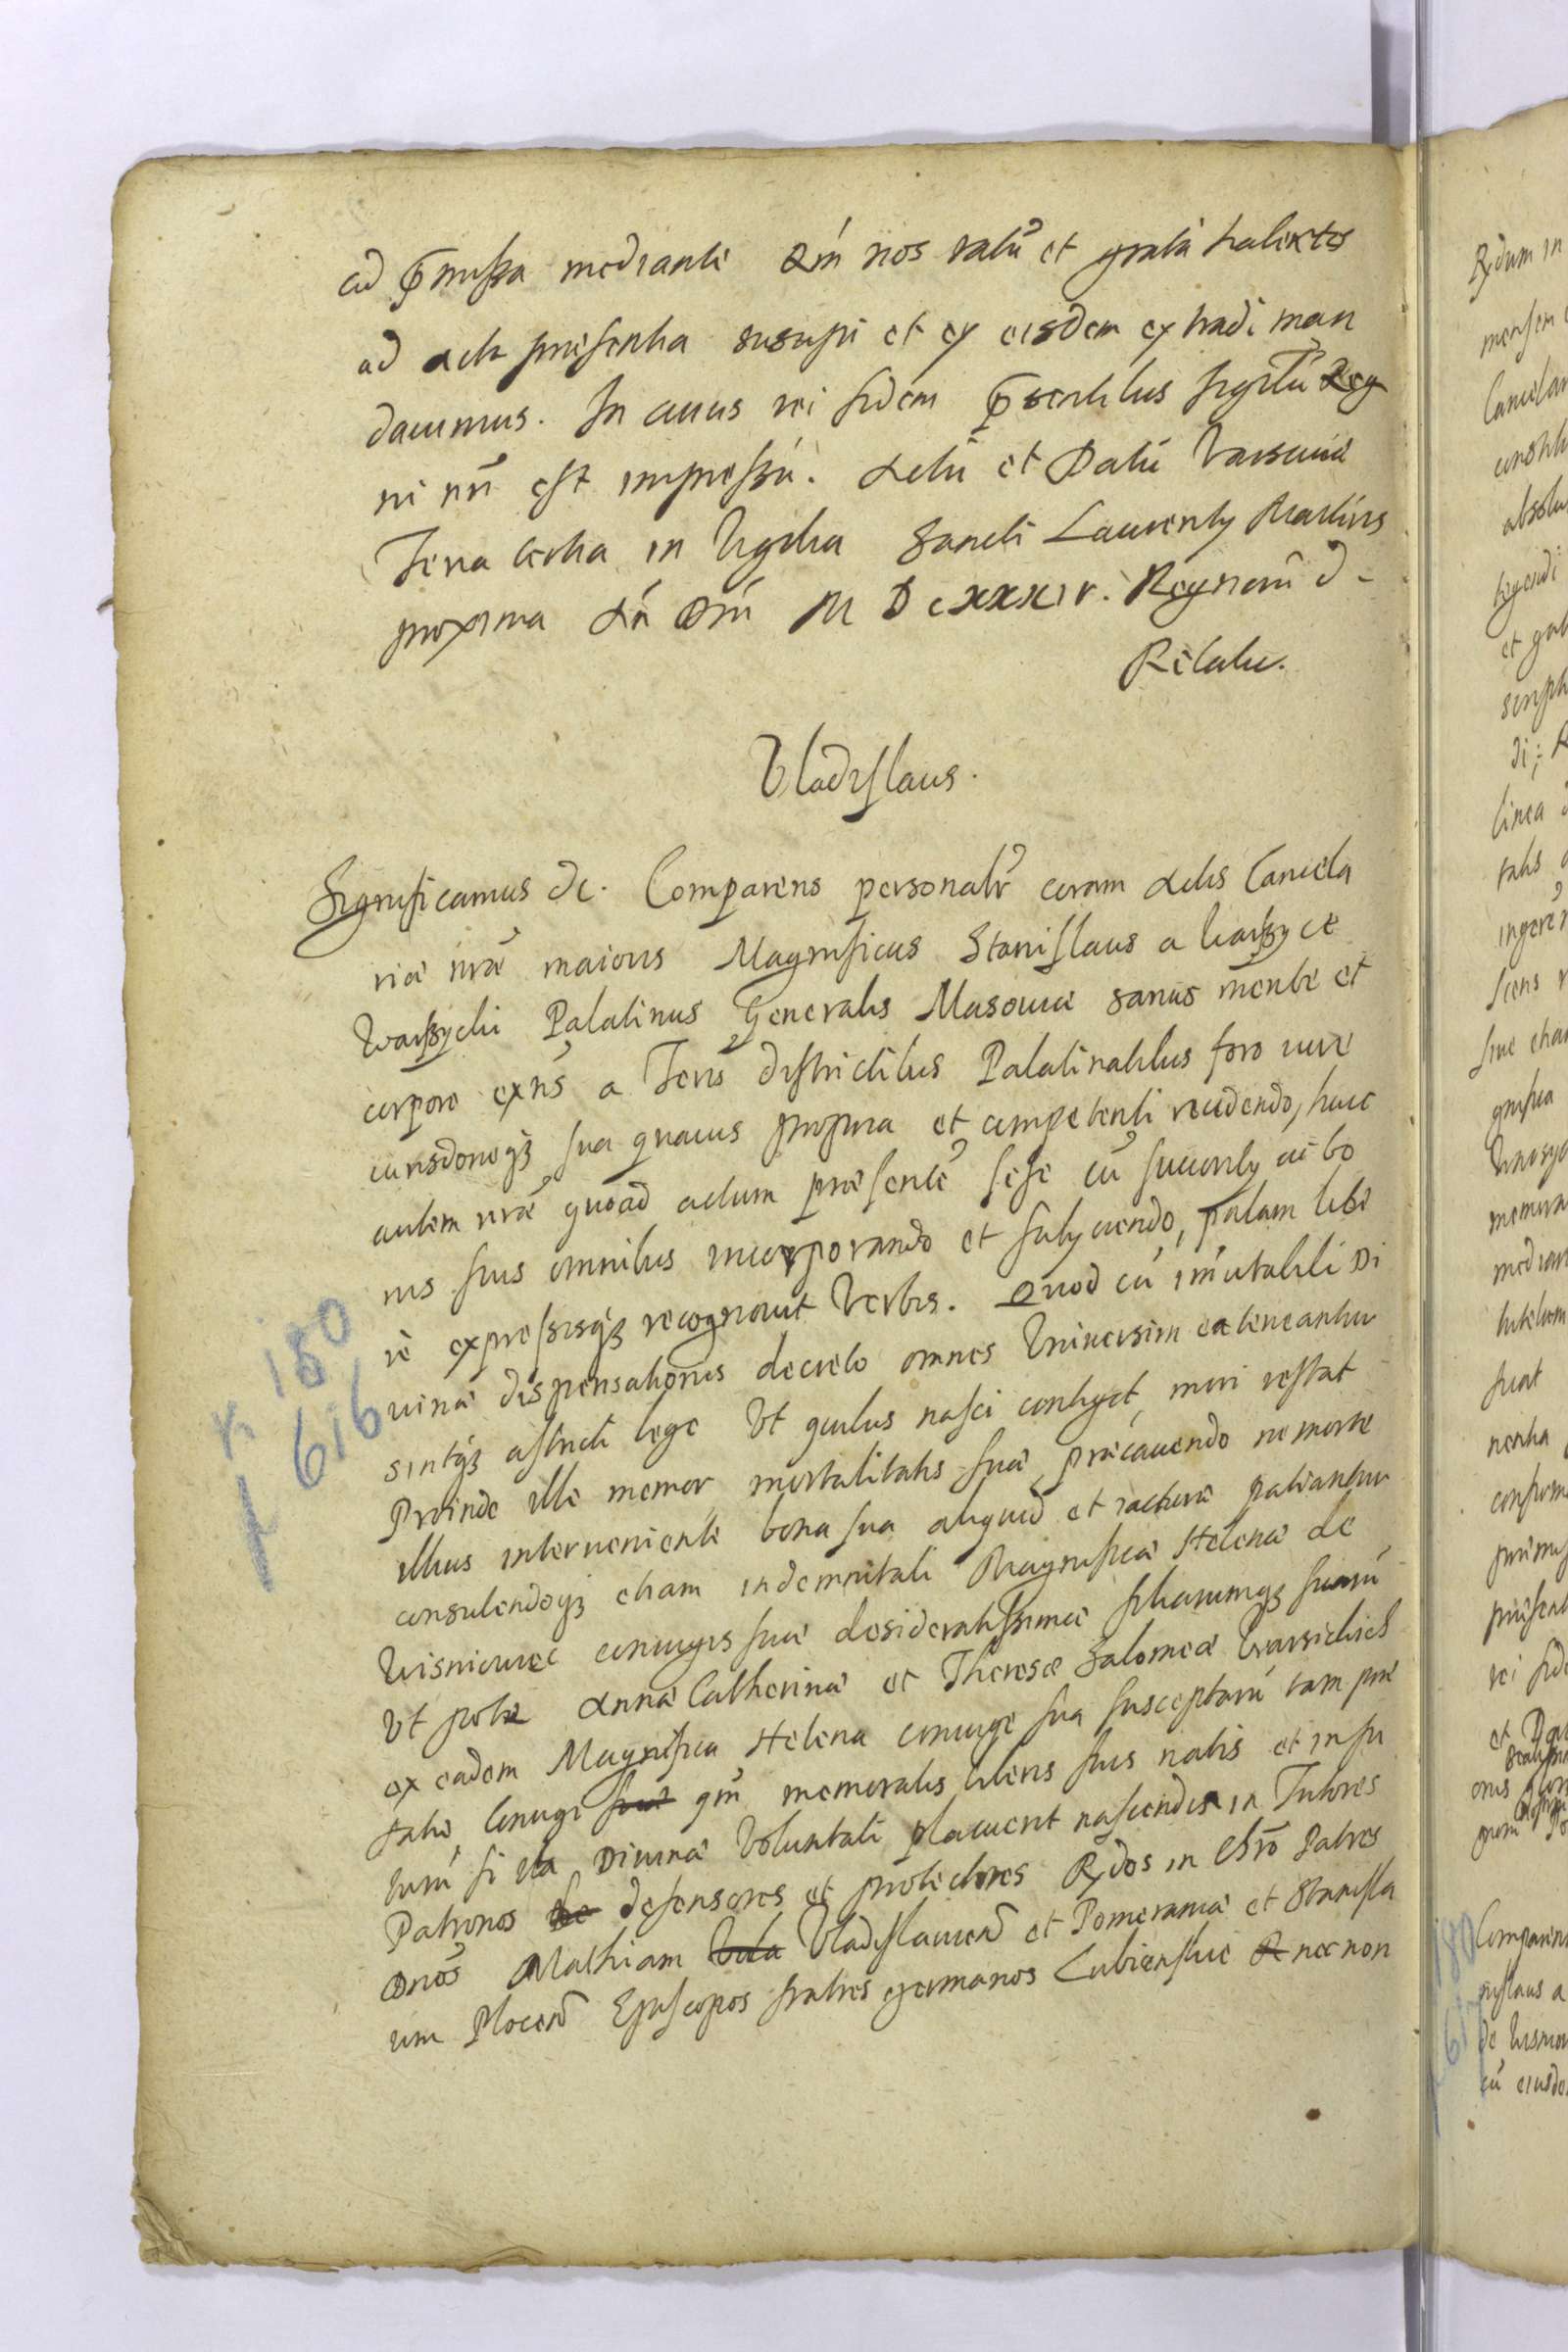 ad p̄missa mediante Qm̄ nos ratū et gratū habentes
ad acta præsentia suscipi et ex eisdem extradi man
dauimus. In cuius rei fidem p̄sentibus sigillū Reg
ni nr̄i est impressū. Actū et Datū Varsauiæ
Feria tertia in Vigilia Sancti Laurentÿ Martiris
proxima An̄ Dn̄i M D c xxx iv. Regnorū &
Relatu.
Vladislaus.
Significamus &c. Comparens personalr̄ coram Actis Cancela
riæ nr̄æ maioris Magnificus Stanislaus a Warszyce
Warszycki Palatinus Generalis Masouiæ sanus mente et
corpore exn̄s a Terris districtibus Palatinatibus foro iure
iurisdoneq₃ sua quauis propria et competenti recedendo, huic
autem nr̄æ quoad actum præsentē sese cū succoribȝ ac bo
nis suis omnibus incorporando et subÿciendo, palam libe
rè expressisq₃ recognouit verbis. Quod cū im̄utabili Di
uinæ dispensationis decreto omnes Vniuersim ea teneantur
sintq₃ astricti lege Vt quibus nasci contigit, mori restat
Proinde ille memor mortalitatis suæ, præcauendo ne morte
illius interueniente bona sua aliquid et iacturæ patiantur
consulendoq₃ etiam indemnitati Magnificæ Helenæ de
Wisniowiec coniugis suæ desideratissimæ filiarumq₃ suarū
Vt pote Annæ Catherinæ et Theresæ Salomeæ Warsickich
ex eadem Magnifica Helena coniuge sua susceptarū tam præ
fatæ Coniugi suæ qm̄ memoratis liberis suis natis et in fu
turū si ita Diuinæ Voluntati placuerit nascendis in Tutores
Patronos de defensores et protectores Rṇdos in Chrō Patres
Dnos Mathiam Vla Vladislauien̄ et Pomeraniæ et Stanisla
um Plocen̄ Episcopos fratres germanos Lubienskie & nec non
k 180
f 616